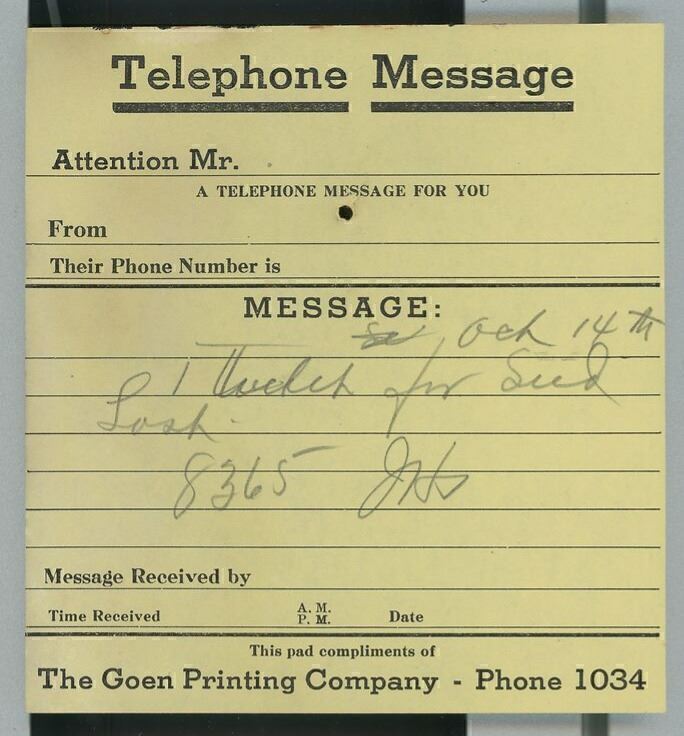 Telephone Message
Attention Mr.
A TELEPHONE MESSAGE FOR YOU
From
Their Phone Number is
MESSAGE:
Oct 14th
1 Ticket for Seed
Lost.
8365
Message Received by
Time Received A. M. P. M. Date
This pad compliments of
The Goen Printing Company - Phone 1034